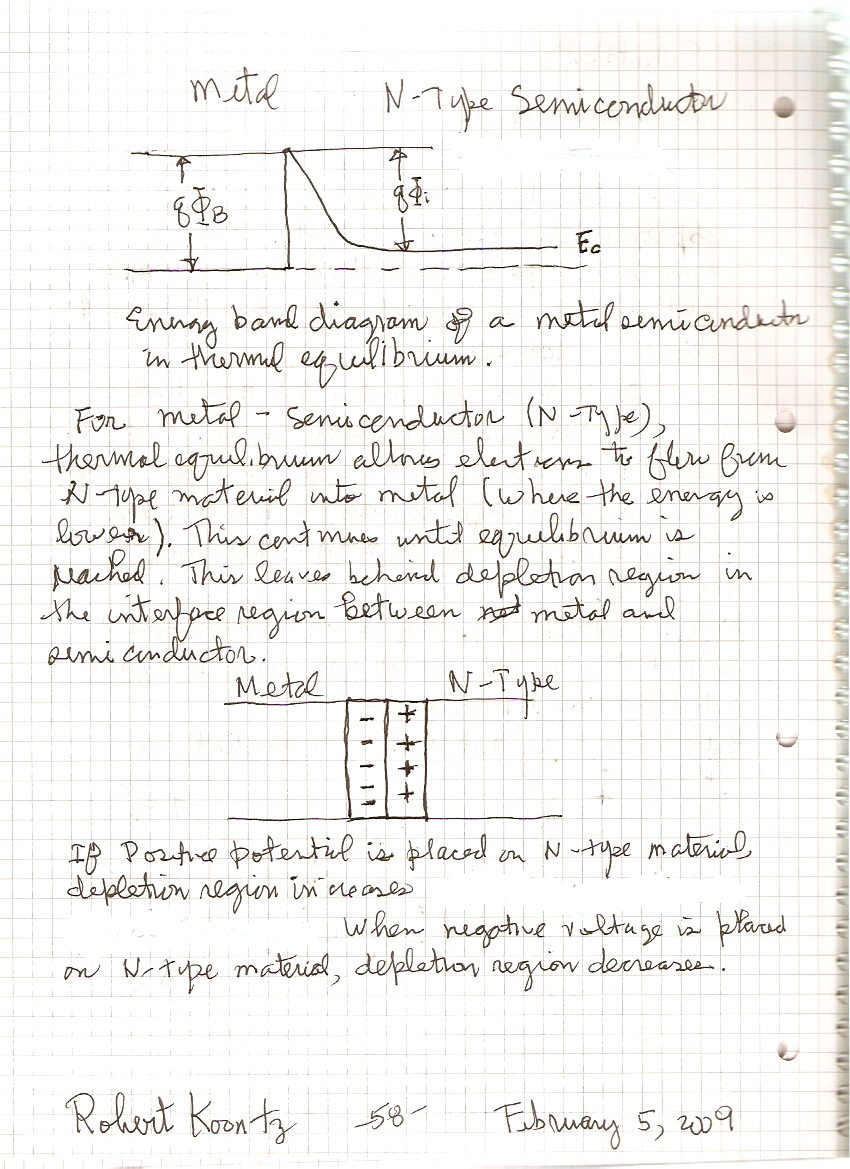 Metal N-Type Semiconductor
qΦB qΦi
Ec
Energy band diagram of a metal semiconductor
in thermal equilibrium.
For metal - Semiconductor (N-Type),
thermal equilibrium allows electrons to flow from
N-type material into metal (where the energy is
lower). This continues until equilibrium is
reached. This leaves behind depletion region in
the interface region between metal and
semiconductor.
Metal N-Type
- +
- +
- +
- +
-
If Positive potential is placed on N-type material,
depletion region increases
When negative voltage is placed
on N-type material, depletion region decreases.
Robert Koontz -58- February 5, 2009